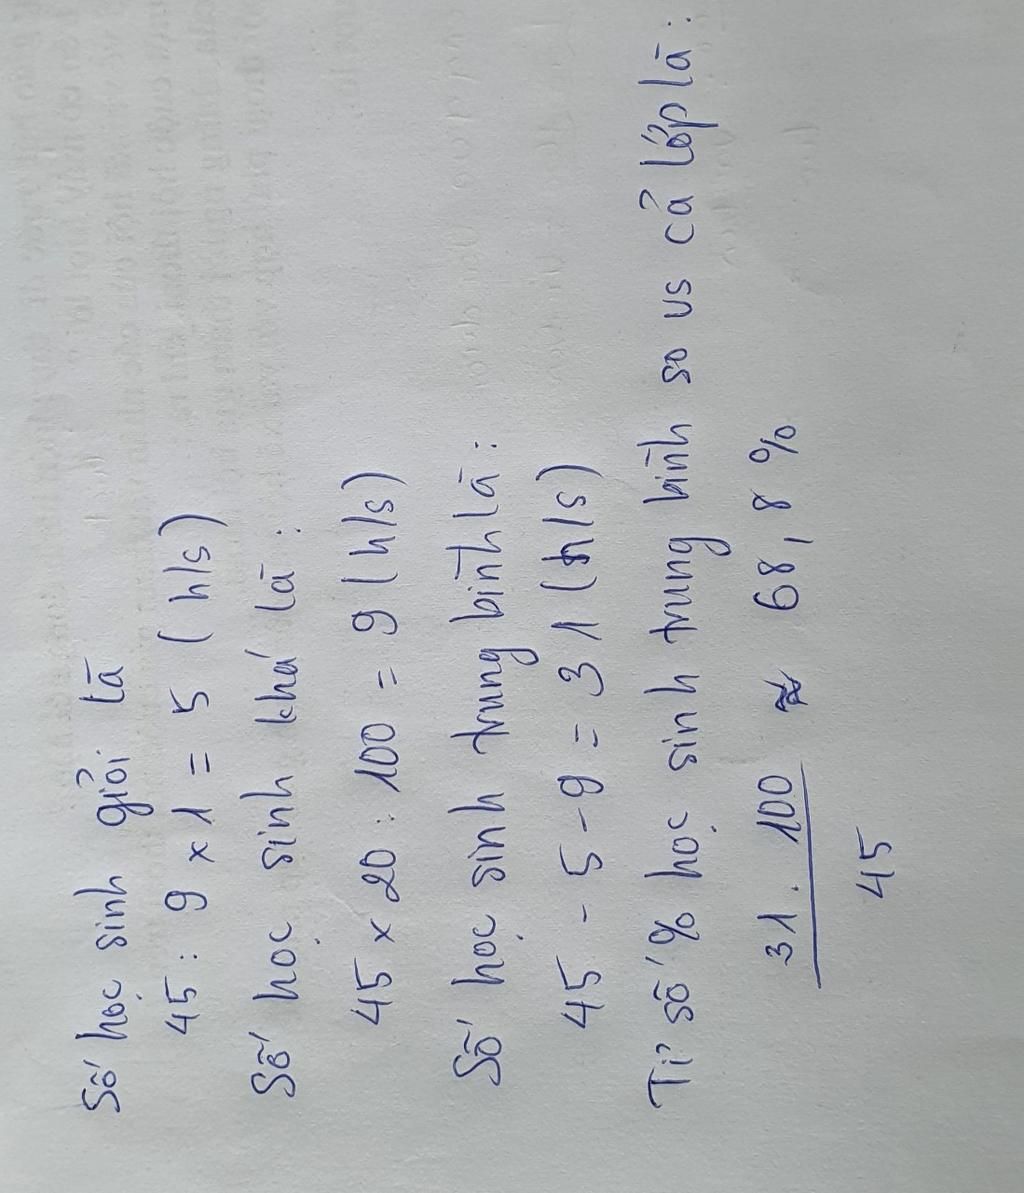 Số học sinh giỏi là
45 : 9 x 1 = 5 (h/s)
Số học sinh khá là :
45 x 20 : 100 = 9 (h/s)
Số học sinh trung bình là :
45 - 5 - 9 = 31 (h/s)
Tỉ số % học sinh trung bình so vs cả lớp là :
31 . 100 ≈ 68,8 %
45